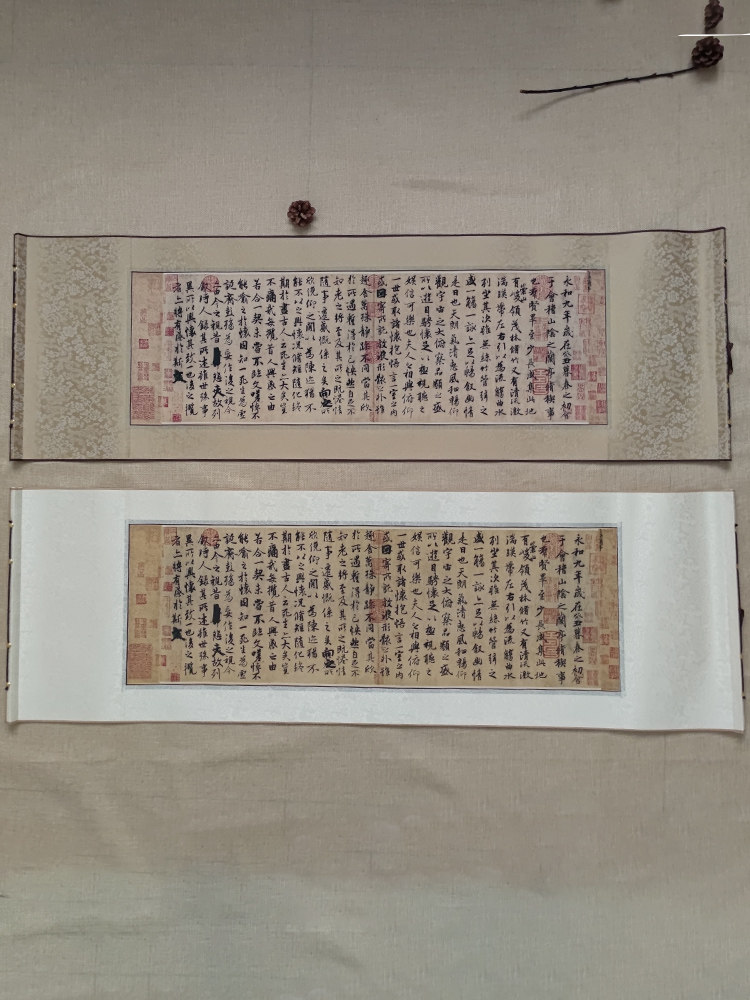 永和九年歲在癸丑暮春之初會
于會稽山陰之蘭亭脩稧事
也群賢畢至少長咸集此地
有崇山峻領茂林脩竹又有清流激
湍暎帶左右引以為流觴曲水
列坐其次雖無絲竹管弦之
盛一觴一詠亦足以暢敘幽情
是日也天朗氣清惠風和暢仰
觀宇宙之大俯察品類之盛
所以遊目騁懷足以極視聽之
娛信可樂也夫人之相與俯仰
一世或取諸懷抱悟言一室之內
或因寄所託放浪形骸之外雖
趣舍萬殊靜躁不同當其欣
於所遇暫得於己快然自足不
知老之將至及其所之既惓情
隨事遷感慨係之矣向之所
欣俛仰之閒以為陳迹猶不
能不以之興懷況脩短隨化終
期於盡古人云死生亦大矣豈
不痛哉每攬昔人興感之由
若合一契未嘗不臨文嗟悼不
能喻之於懷固知一死生為虛
誕齊彭殤為妄作後之視今
亦由今之視昔悲夫故列
敘時人錄其所述雖世殊事
異所以興懷其致一也後之攬
者亦將有感於斯文
永和九年歲在癸丑暮春之初會
于會稽山陰之蘭亭脩稧事
也群賢畢至少長咸集此地
有崇山峻領茂林脩竹又有清流激
湍暎帶左右引以為流觴曲水
列坐其次雖無絲竹管弦之
盛一觴一詠亦足以暢敘幽情
是日也天朗氣清惠風和暢仰
觀宇宙之大俯察品類之盛
所以遊目騁懷足以極視聽之
娛信可樂也夫人之相與俯仰
一世或取諸懷抱悟言一室之內
或因寄所託放浪形骸之外雖
趣舍萬殊靜躁不同當其欣
於所遇暫得於己快然自足不
知老之將至及其所之既惓情
隨事遷感慨係之矣向之所
欣俛仰之閒以為陳迹猶不
能不以之興懷況脩短隨化終
期於盡古人云死生亦大矣豈
不痛哉每攬昔人興感之由
若合一契未嘗不臨文嗟悼不
能喻之於懷固知一死生為虛
誕齊彭殤為妄作後之視今
亦由今之視昔悲夫故列
敘時人錄其所述雖世殊事
異所以興懷其致一也後之攬
者亦將有感於斯文